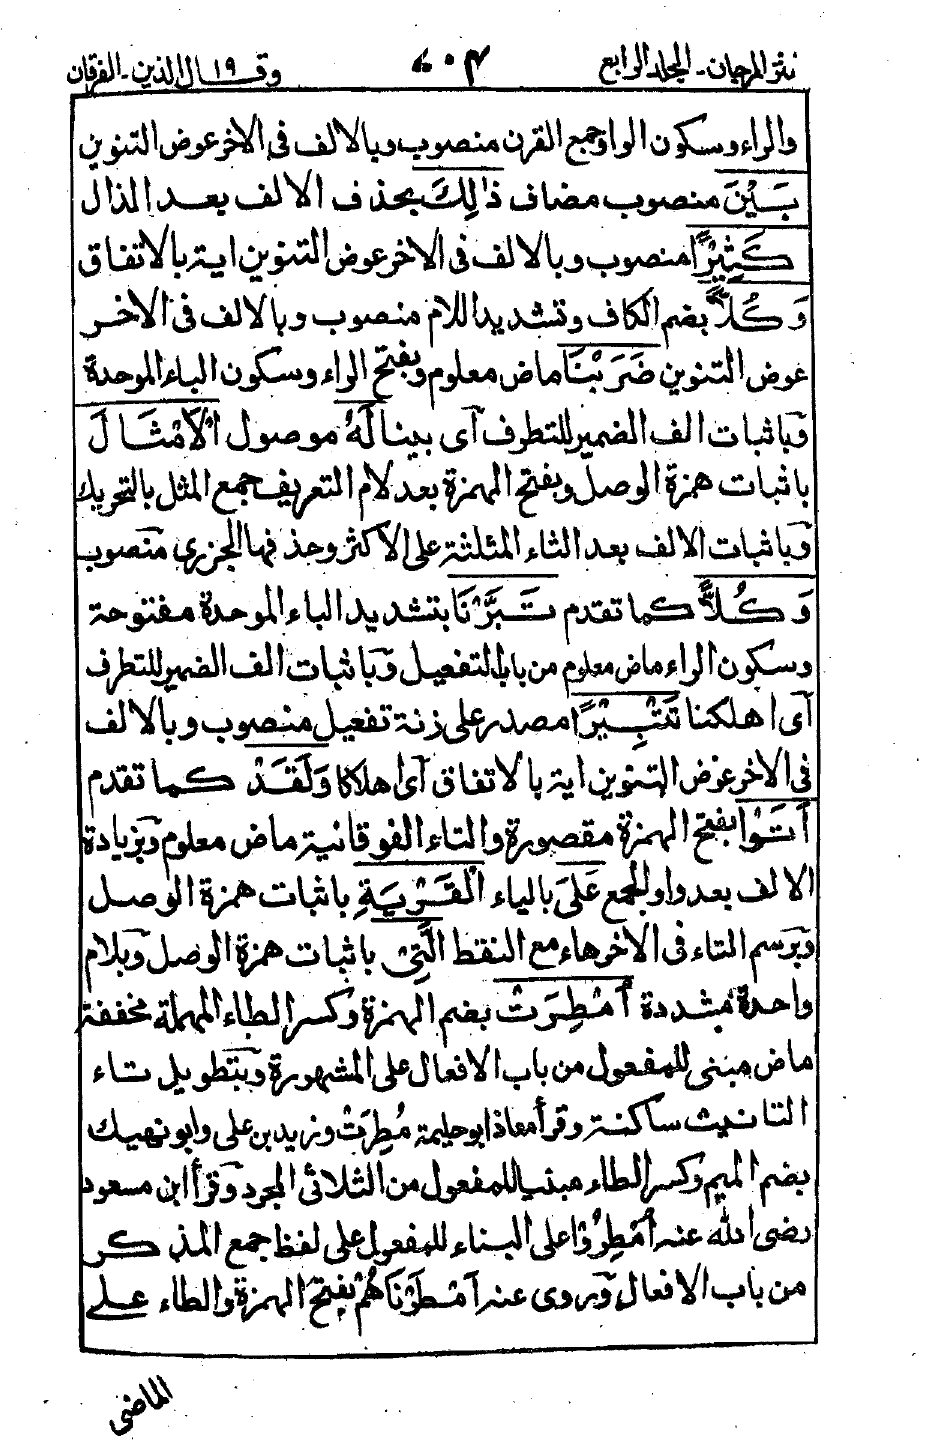 نثر المرجان - المجلد الرابع ٤٠٧ وقال الذين ١٩ - الفرقان
والراء وسكون الواو جمع القرن منصوب وبالالف فى الاخر عوض التنوين
بَيْنَ منصوب مضاف ذٰلِكَ بحذف الالف بعد الذال
كَثِيْرًا منصوب وبالالف فى الاخر عوض التنوين اية بالاتفاق
وَكُلًّا بضم الكاف وتشديد اللام منصوب وبالالف فى الاخر
عوض التنوين ضَرَبْنَا ماض معلوم وبفتح الراء وسكون الباء الموحدة
وباثبات الف الضمير للتطرف اى بينا لَهُ موصول الْاَمْثَالَ
باثبات همزة الوصل وبفتح الهمزة بعد لام التعريف جمع المثل بالتحريك
وباثبات الالف بعد الثاء المثلثة على الاكثر وحذفها الجزرى منصوب
وَكُلًّا كما تقدم تَبَّرْنَا بتشديد الباء الموحدة مفتوحة
وسكون الراء ماض معلوم من باب التفعيل وباثبات الف الضمير للتطرف
اى اهلكنا تَتْبِيْرًا مصدر على زنة تفعيل منصوب وبالالف
فى الاخر عوض التنوين اية بالاتفاق اى اهلاكا وَلَقَدْ كما تقدم
اَتَوْا بفتح الهمزة مقصورة والتاء الفوقانية ماض معلوم وبزيادة
الالف بعد واو الجمع عَلَى بالياء الْقَرْيَةِ باثبات همزة الوصل
وبرسم التاء فى الاخر هاء مع النقط الَّتِىْ باثبات همزة الوصل وبلام
واحدة مشددة اُمْطِرَتْ بضم الهمزة وكسر الطاء المهملة مخففة
ماض مبنى للمفعول من باب الافعال على المشهورة وبتطويل تاء
التانيث ساكنة وقرأ معاذ ابو حليمة مُطِرَتْ وزيد بن على وابو نهيك
بضم الميم وكسر الطاء مبنيا للمفعول من الثلاثى المجرد وقرأ ابن مسعود
رضى الله عنه اُمْطِرُوْا على البناء للمفعول على لفظ جمع المذكر
من باب الافعال وروى عنه اَمْطَرْنَاهُمْ بفتح الهمزة والطاء على
الماضى